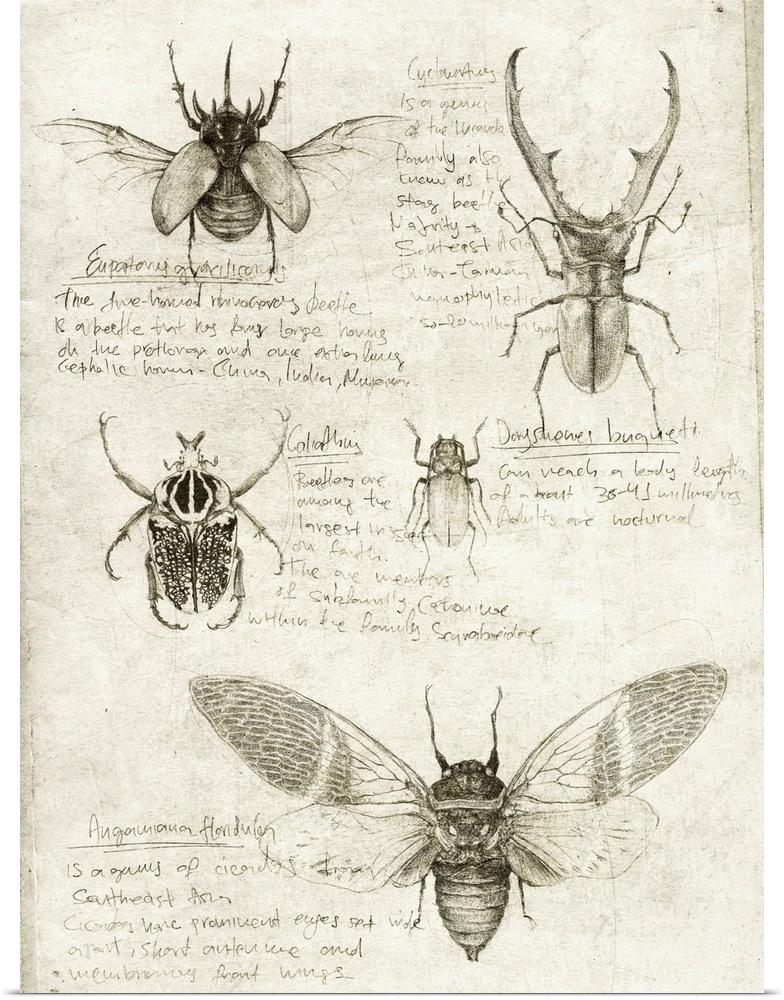 Cyclommatus
Is a genus
of the Lucanidae
family also
know as the
stag beetle
Majority -
Southeast Asia
China - Taiwan
Eupatorus gracilicornis
The five-horned rhinoceros beetle
Is a beetle that has four large horns
on the prothorax and one
Cephalic horn - China, India,
Goliathus
Beetles are
among the
largest insect
on Earth.
The are members
of subfamily, Cetoniinae
within the family Scarabaeidae
Dorysthenes buqueti
Can reach a body length
of about 36-41 millimetres
Adults are nocturnal
Angamiana floridula
Is a genus of cicadas from
Southeast Asia
Cicadas have prominent eyes set wide
apart, short antennae and
membranous front wings